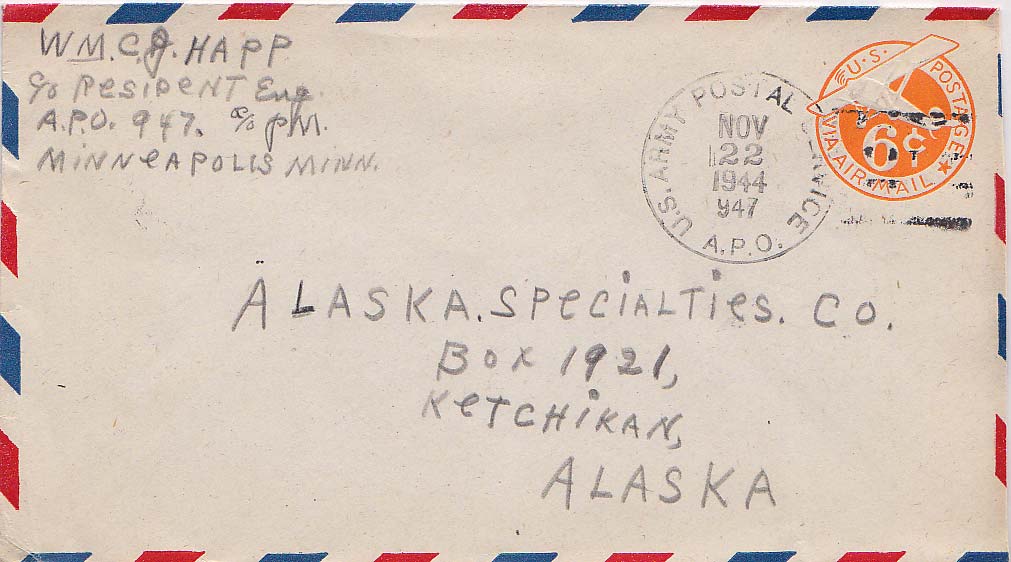 WM. C. J. HAPP
c/o RESIDENT Eng.
A.P.O. 947. c/o PM.
MINNEAPOLIS MINN.
U.S. ARMY POSTAL SERVICE
NOV
22
1944
947
A.P.O.
U.S. POSTAGE
6¢
VIA AIR MAIL
ALASKA. SPECIALTIES. CO.
BOX 1921,
KETCHIKAN,
ALASKA